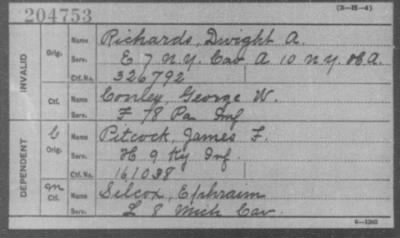 204753
(3-II-4)
INVALID
Orig.
Name Richards, Dwight A.
Serv. E 7 N.Y. Cav A 10 N.Y. H A.
Ctf. No. 326792
Ctf.
Name Conley, George W.
Serv. F 78 Pa Inf
DEPENDENT
C
Orig.
Name Pitcock, James F.
Serv. H 9 Ky Inf.
Ctf. No. 161038
m
Ctf.
Name Silcox, Ephraim
Serv. L 8 Mich Cav.